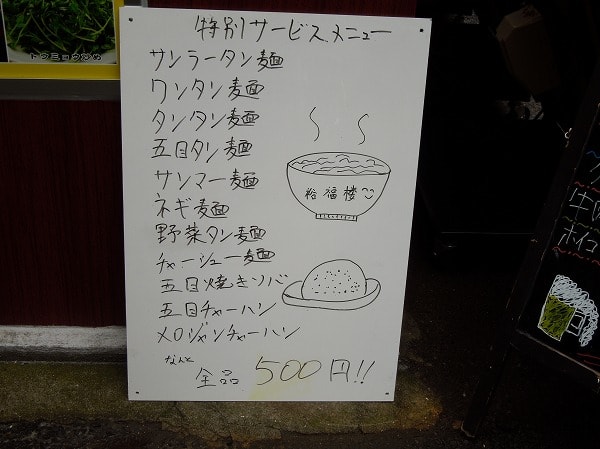 トウミョウ炒め
特別サービスメニュー
サンラータン麺
ワンタン麺
タンタン麺
五目タン麺
サンマー麺
ネギ麺
野菜タン麺
チャーシュー麺
五目焼きソバ
五目チャーハン
メロジャンチャーハン
なんと
全品 500円!!
裕福楼
ホイコ